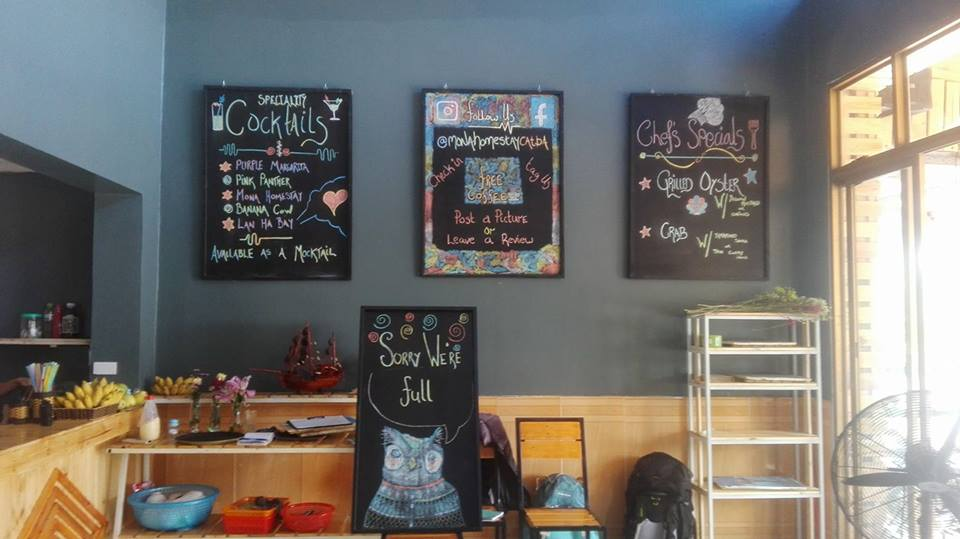 SPECIALITY
Cocktails
PURPLE MARGARITA
PINK PANTHER
MONA HOMESTAY
BANANA COW
LAN HA BAY
AVAILABLE AS A MOCKTAIL
f
Follow Us
@MONAHOMESTAYCATBA
Check in
Tag Us
FREE
COFFEE
POST A PICTURE
OR
LEAVE A REVIEW
Chef's Specials
GRILLED OYSTER
W/
CRAB
W/
SORRY WE'RE
full